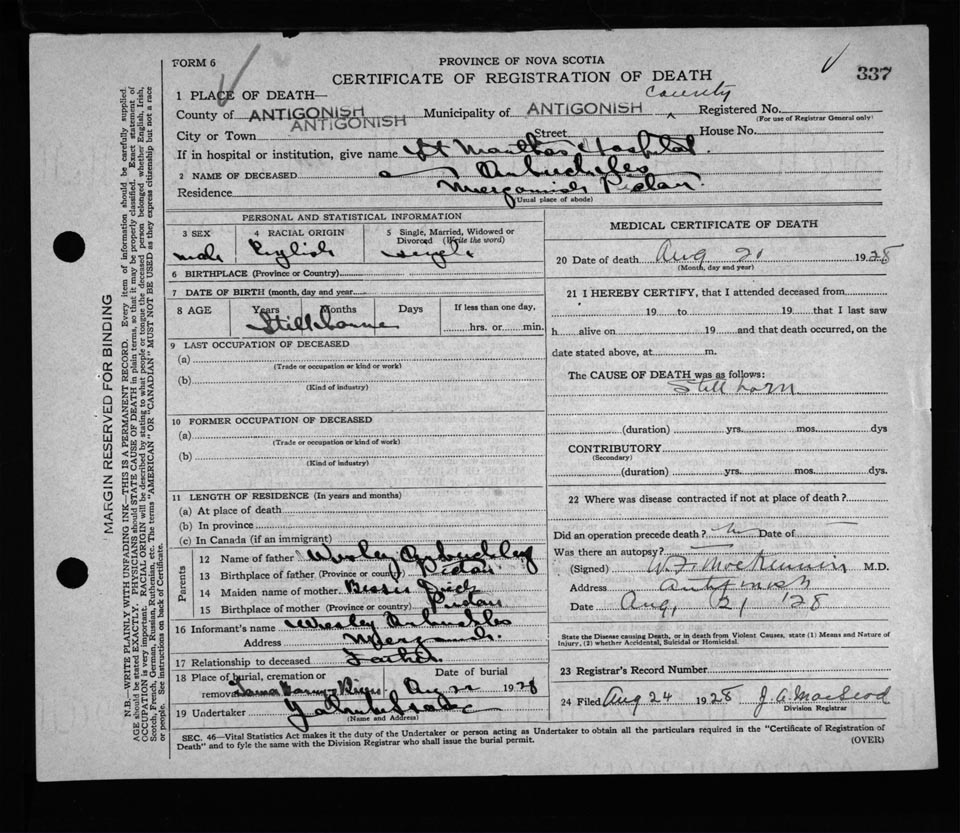 FORM 6
PROVINCE OF NOVA SCOTIA
CERTIFICATE OF REGISTRATION OF DEATH
337
1 PLACE OF DEATH—
County of ANTIGONISH ANTIGONISH Municipality of ANTIGONISH County Registered No.
(For use of Registrar General only)
City or Town Street House No.
If in hospital or institution, give name St Marthas Hospital.
2 NAME OF DECEASED Arbuckles
Residence Merigomish Pictou.
(Usual place of abode)
PERSONAL AND STATISTICAL INFORMATION
3 SEX 4 RACIAL ORIGIN 5 Single, Married, Widowed or Divorced (Write the word)
male English single
6 BIRTHPLACE (Province or Country)
7 DATE OF BIRTH (month, day and year
8 AGE Years Months Days If less than one day,
Stillborne hrs. or min.
9 LAST OCCUPATION OF DECEASED
(a)
(Trade or occupation or kind or work)
(b)
(Kind of industry)
10 FORMER OCCUPATION OF DECEASED
(a)
(Trade or occupation or kind of work)
(b)
(Kind of industry)
11 LENGTH OF RESIDENCE (In years and months)
(a) At place of death
(b) In province
(c) In Canada (if an immigrant)
Parents
12 Name of father Wesley Arbuckles
13 Birthplace of father (Province or country) Pictou
14 Maiden name of mother
15 Birthplace of mother (Province or country) Pictou
16 Informant's name Wesley Arbuckles
Address
17 Relationship to deceased Father
18 Place of burial, cremation or removal Date of burial
Aug 22 1928
19 Undertaker
(Name and Address)
MEDICAL CERTIFICATE OF DEATH
20 Date of death Aug 21 1928
(Month, day and year)
21 I HEREBY CERTIFY, that I attended deceased from
19 to 19 that I last saw
h alive on 19 and that death occurred, on the
date stated above, at m.
The CAUSE OF DEATH was as follows:
Still born
(duration) yrs. mos. dys
CONTRIBUTORY
(Secondary)
(duration) yrs. mos. dys.
22 Where was disease contracted if not at place of death?
Did an operation precede death? No Date of
Was there an autopsy?
(Signed) W.F. MacKinnon M.D.
Address Antigonish
Date Aug, 21 '28
State the Disease causing Death, or in death from Violent Causes, state (1) Means and Nature of
Injury, (2) whether Accidental, Suicidal or Homicidal.
23 Registrar's Record Number
24 Filed Aug 24 1928 J. A. MacLeod
Division Registrar
SEC. 46—Vital Statistics Act makes it the duty of the Undertaker or person acting as Undertaker to obtain all the particulars required in the "Certificate of Registration of
Death" and to fyle the same with the Division Registrar who shall issue the burial permit.
(OVER)
MARGIN RESERVED FOR BINDING
N.B.—WRITE PLAINLY WITH UNFADING INK—THIS IS A PERMANENT RECORD. Every item of information should be carefully supplied.
AGE should be stated EXACTLY. PHYSICIANS should STATE CAUSE OF DEATH in plain terms, so that it may be properly classified. Exact statement of
OCCUPATION is very important. RACIAL ORIGIN will be described by stating to what people or tongue the deceased person belonged whether English, Irish,
Scotch, French, German, Russian, Ruthenian, etc. The terms "AMERICAN" OR "CANADIAN" MUST NOT BE USED as they express citizenship but not a race
or people. See instructions on back of Certificate.